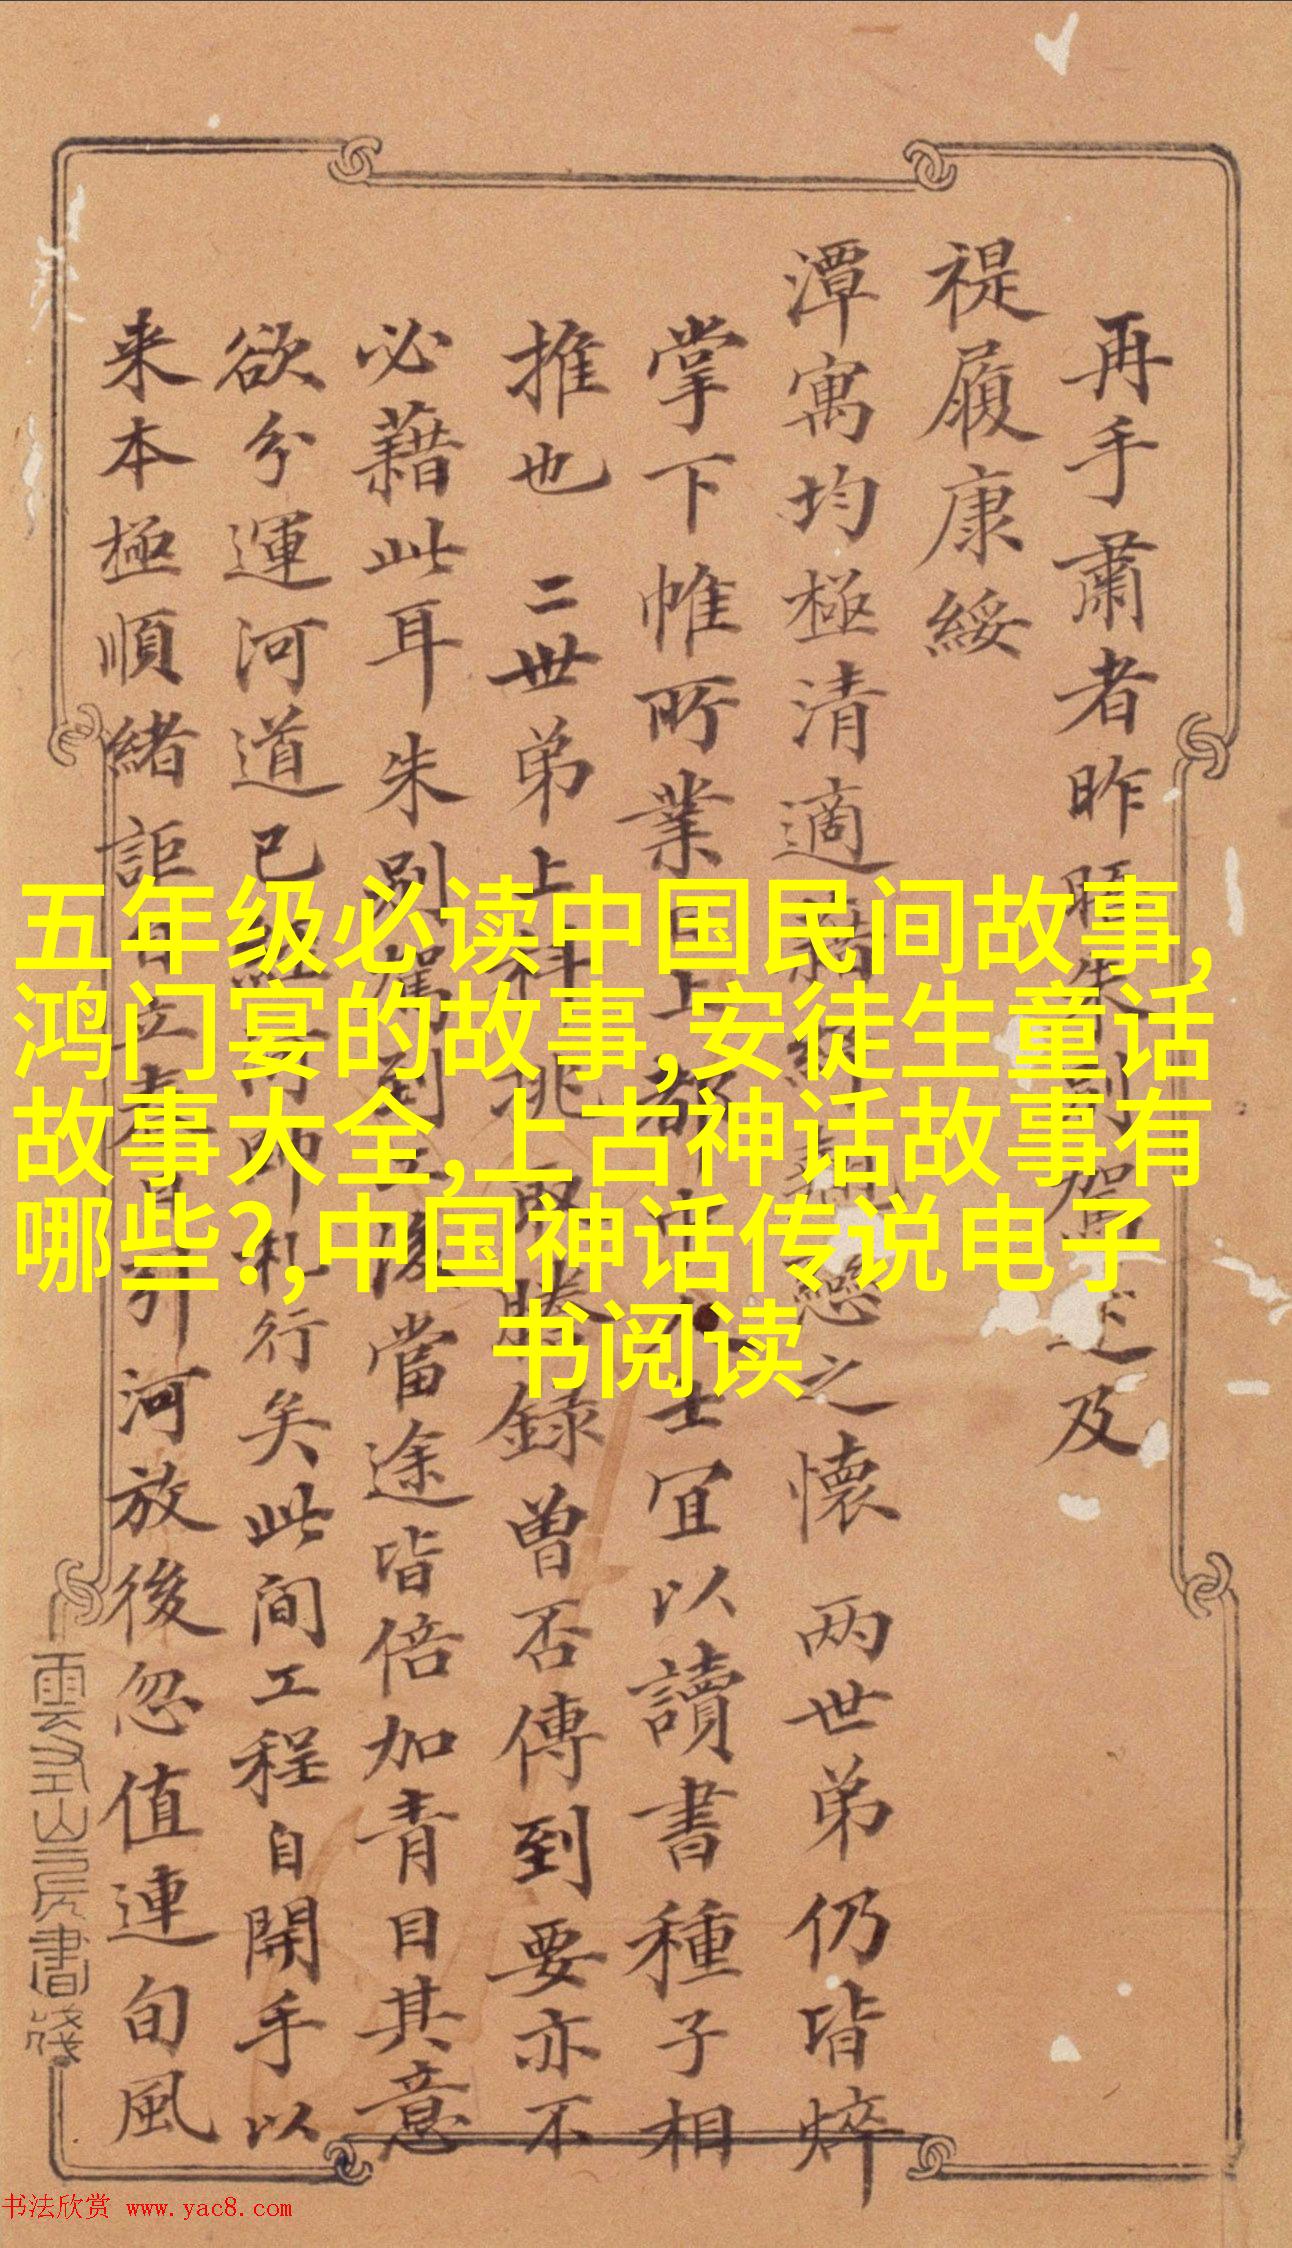 再手肅者昨晤朱別駕述及
禔履康綏
潭寓均極清適戀之懷 两世弟仍皆焠
掌下帷所業日上都中人士宜以讀書種子相
推也 二世弟上科挑取謄錄曾否傳到要亦不
必藉此耳朱別駕到工後當途皆倍加青目其意
欲分運河道已即札行矣此間工程自開手以
来本極順緒詎引河放後忽值連旬風
雲山房書箋
五年级必读中国民间故事,
鸿门宴的故事,安徒生童话
故事大全,上古神话故事有
哪些?,中国神话传说电子
书阅读
书法欣赏 www.yac8.com